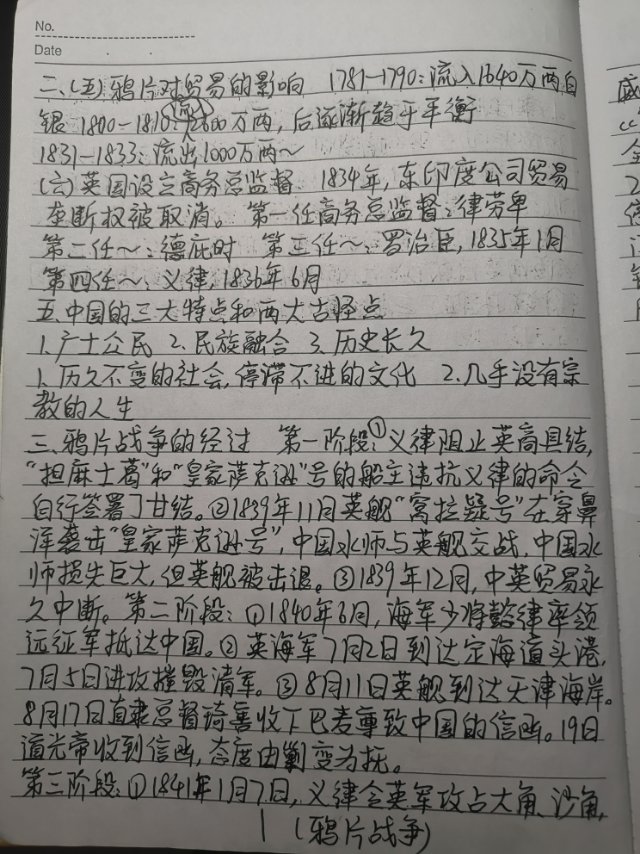 No.
Date
二、(五)鸦片对贸易的影响 1781-1790:流入1640万两白
银 1800-1810:流出2600万两,后逐渐趋于平衡
1831-1833:流出1000万两～
(六)英国设立商务总监督 1834年,东印度公司贸易
垄断权被取消。 第一任商务总监督:律劳卑
第二任～:德庇时 第三任～:罗治臣,1835年1月
第四任～:义律,1836年6月
五.中国的三大特点和两大古怪点
1.广土众民 2.民族融合 3.历史长久
1.历久不变的社会,停滞不进的文化 2.几乎没有宗
教的人生
三、鸦片战争的经过 第一阶段:①义律阻止英商具结,
“担麻士葛”和“皇家萨克逊”号的船主违抗义律的命令
自行签署了甘结。②1839年11月英舰“窝拉疑号”在穿鼻
洋袭击“皇家萨克逊号”,中国水师与英舰交战,中国水
师损失巨大,但英舰被击退。③1839年12月,中英贸易永
久中断。第二阶段:①1840年6月,海军少将懿律率领
远征军抵达中国。②英海军7月2日到达定海道头港,
7月5日进攻摧毁清军。③8月11日英舰到达天津海岸。
8月17日直隶总督琦善收下巴麦尊致中国的信函。19日
道光帝收到信函,态度由剿变为抚。
第三阶段:①1841年1月7日,义律令英军攻占大角、沙角,
1 (鸦片战争)